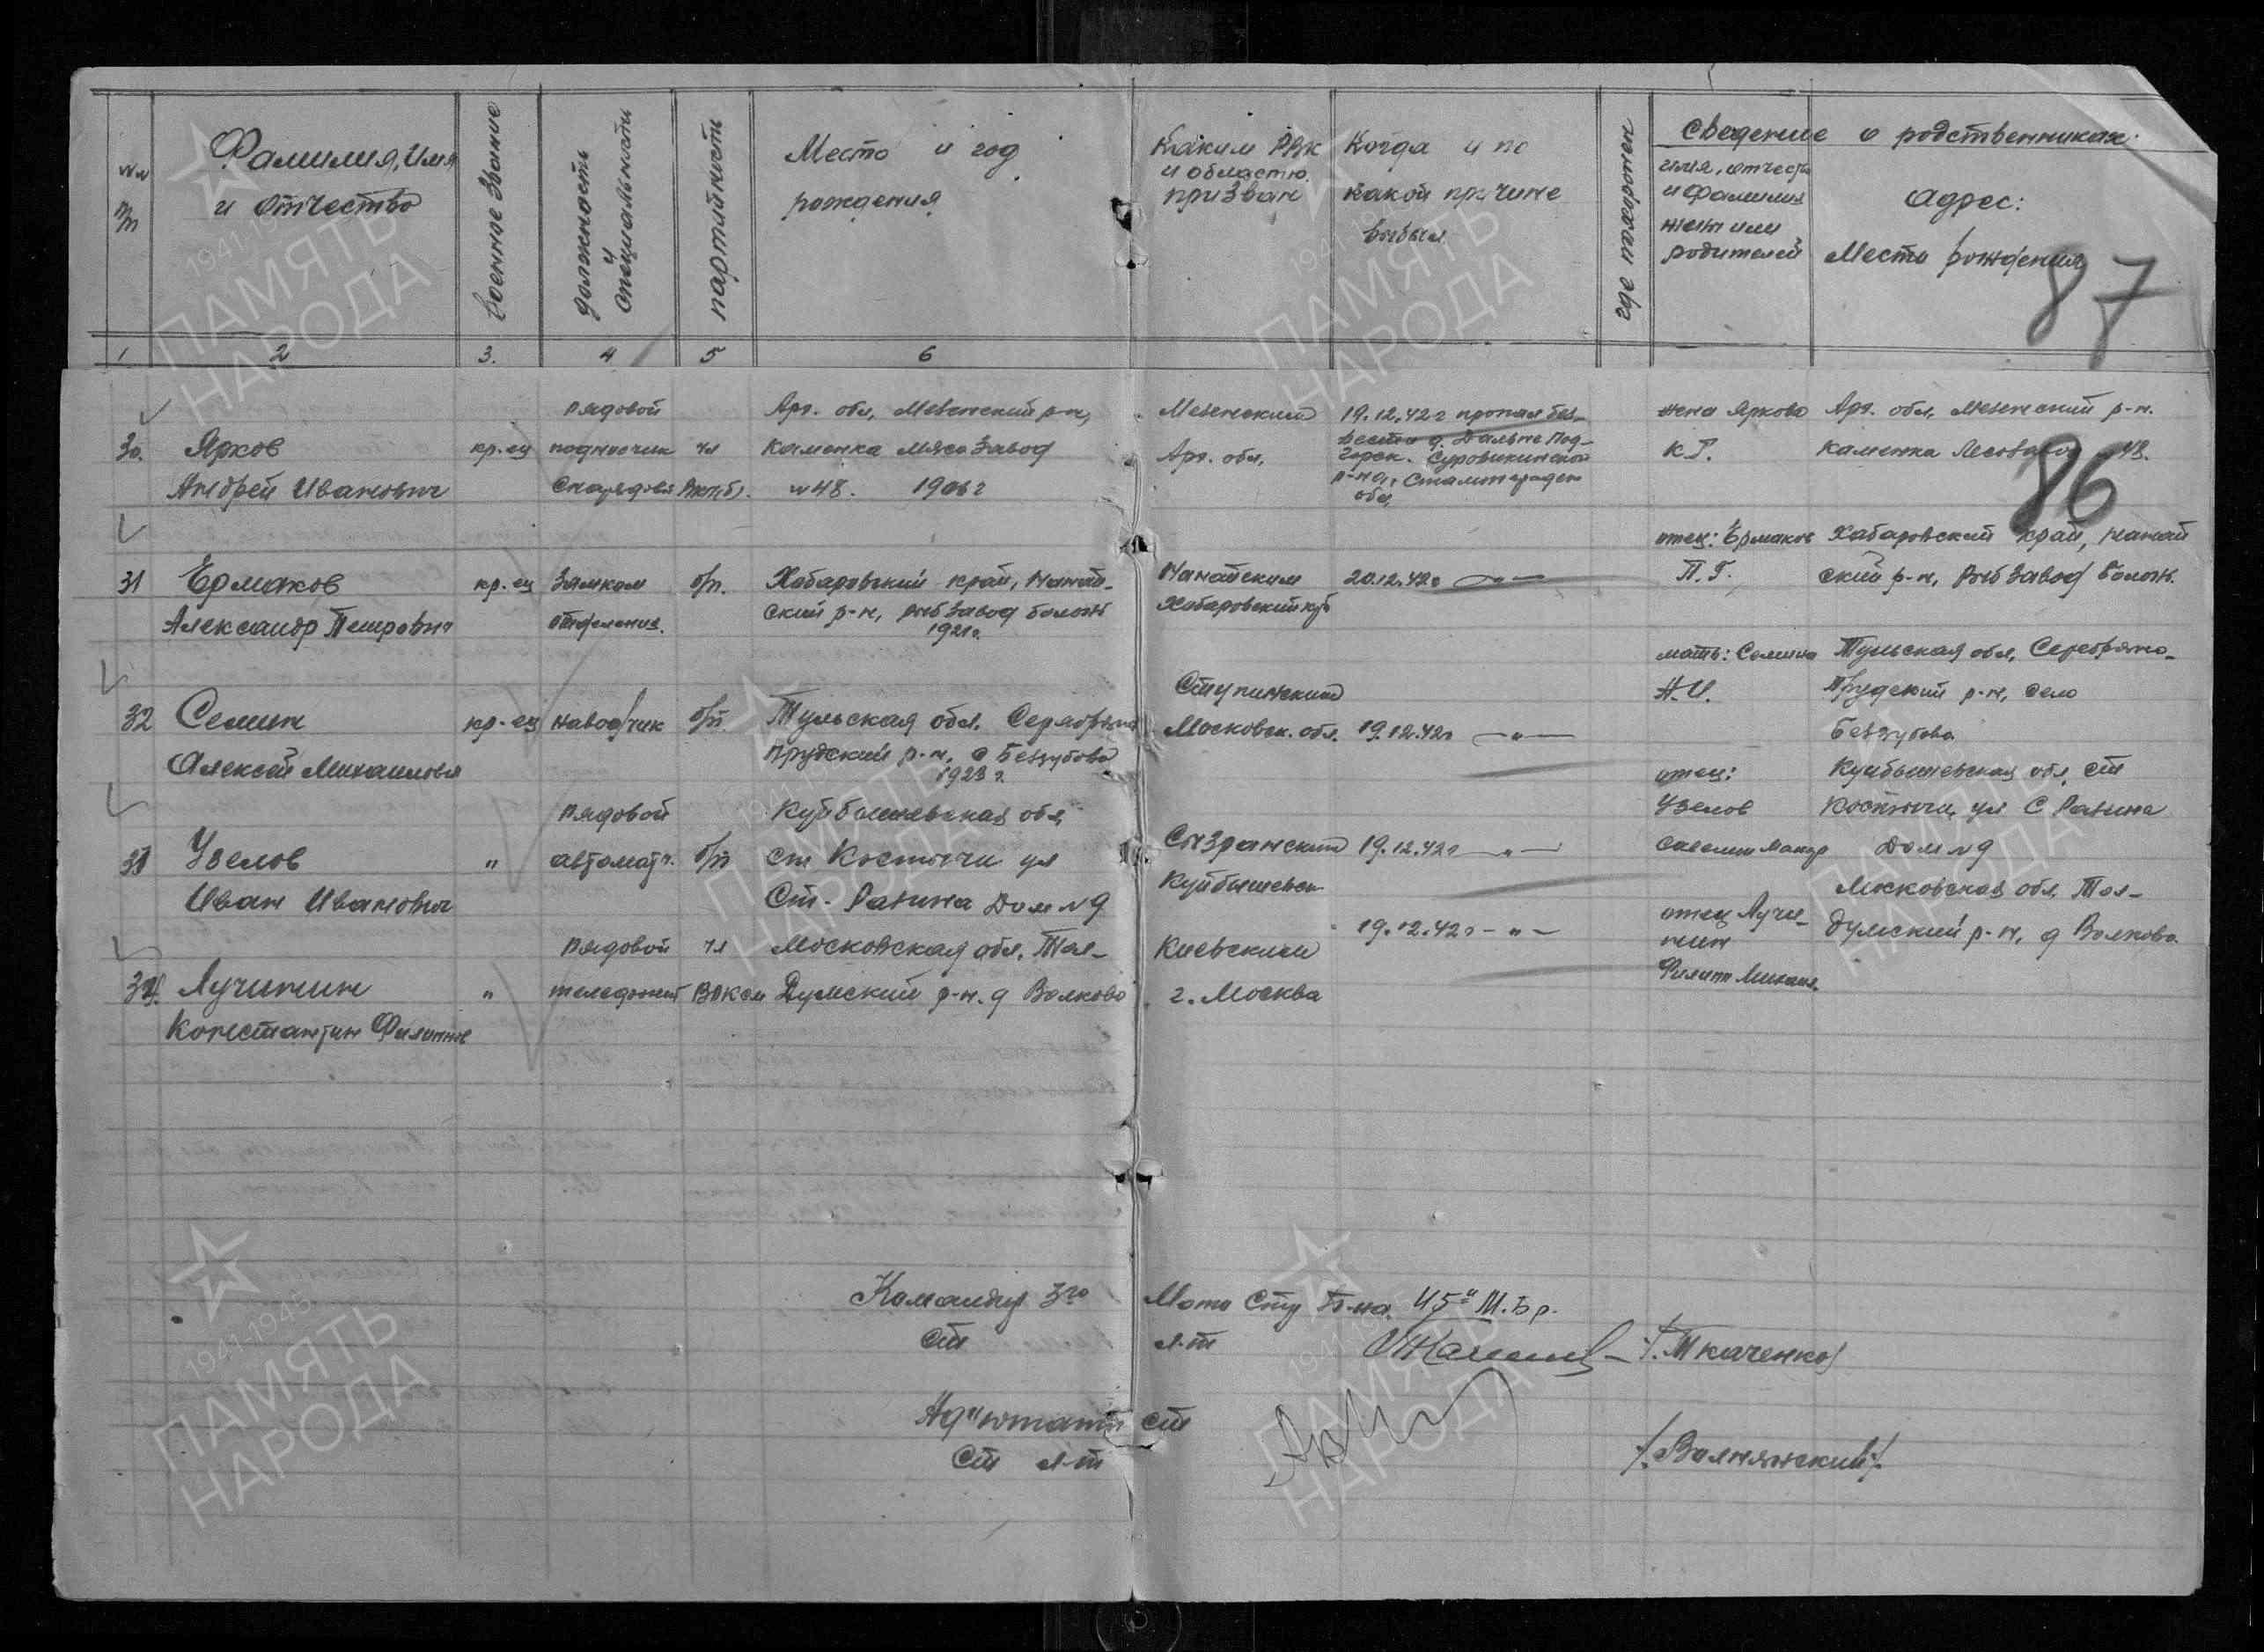 №№ п/п
Фамилия, имя и отчество
Военное звание
должность и специальность
партийность
Место и год рождения
Каким РВК и областью призван
Когда и по какой причине выбыл
где похоронен
Сведение о родственниках:
имя, отчеств и фамилия жены или родителей
Адрес:
Место рождения
87
1 2 3. 4 5 6
30. Ярков
Андрей Иванович
кр-ец
рядовой
подносчик
снарядов
чл
ВКП(б).
Арх. обл, Мезенский р-н,
Каменка мясо завод
№48. 1906г
Мезенский
Арх. обл.
19.12.42г пропал без-
вести д. Дальне Под-
горск. Суровикинского
р-на, Сталинградск
обл,
жена Яркова
К.Г.
Арх. обл, Мезенский р-н.
Каменка Лесозавод 48.
86
31 Ермаков
Александр Петрович
кр-ец
Замком
отделения.
б/п.
Хабаровский край, Нанай-
ский р-н, рыб завод болонь
1921г.
Нанайским
Хабаровский кр
20.12.42г —"—
отец: Ермаков
П.Г.
Хабаровский край, нанай
ский р-н, рыб завод болон.
32 Семин
Алексей Михайлович
кр-ец
наводчик
б/п.
Тульская обл. Серябряно
прудский р-н, с Беззубово
1923 г.
Ступинский
Московск. обл.
19.12.42г —"—
мать: Семина
А.И.
Тульская обл, Серебряно-
Прудский р-н, село
Беззубово
33 Узелов
Иван Иванович
"
рядовой
автоматч.
б/п
Куйбышевская обл,
ст Костычи ул
Ст. Разина Дом №9
Сызранский
Куйбышевск
19.12.42г —"—
отец:
Узелов
Куйбышевская обл, ст
Костычи, ул С Разина
Дом №9
34. Лучинин
Константин Филиппов
"
рядовой
телефонист
чл
ВЛКСМ
Московская обл, Тал-
Думский р-н. д Волково
Киевским
г. Москва
19.12.42г —"—
отец Лучи-
нин
Филипп Михаил.
Московская обл, Тал-
думский р-н, д Волково.
Командир 3го Мото Стр Б-на 45й М.Бр.
Ст л-т /Ткаченко/
Ад"ютант ст
Ст л-т /Волнянский/.
1941-1945
ПАМЯТЬ
НАРОДА